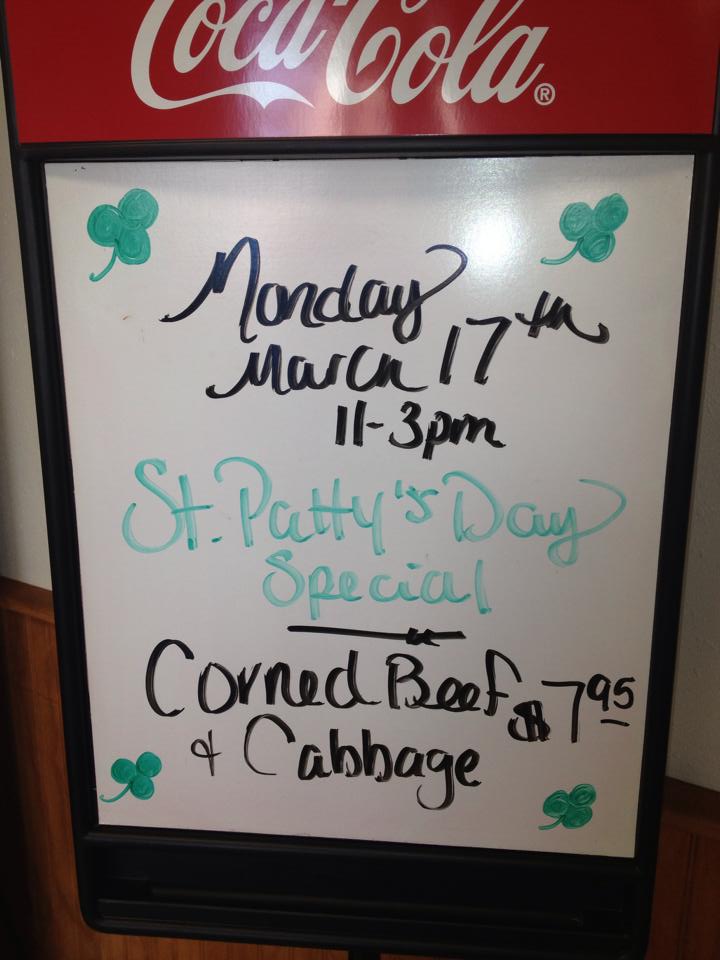 Coca-Cola®
Monday
March 17th
11-3pm
St. Patty's Day
Special
Corned Beef $7.95
& Cabbage